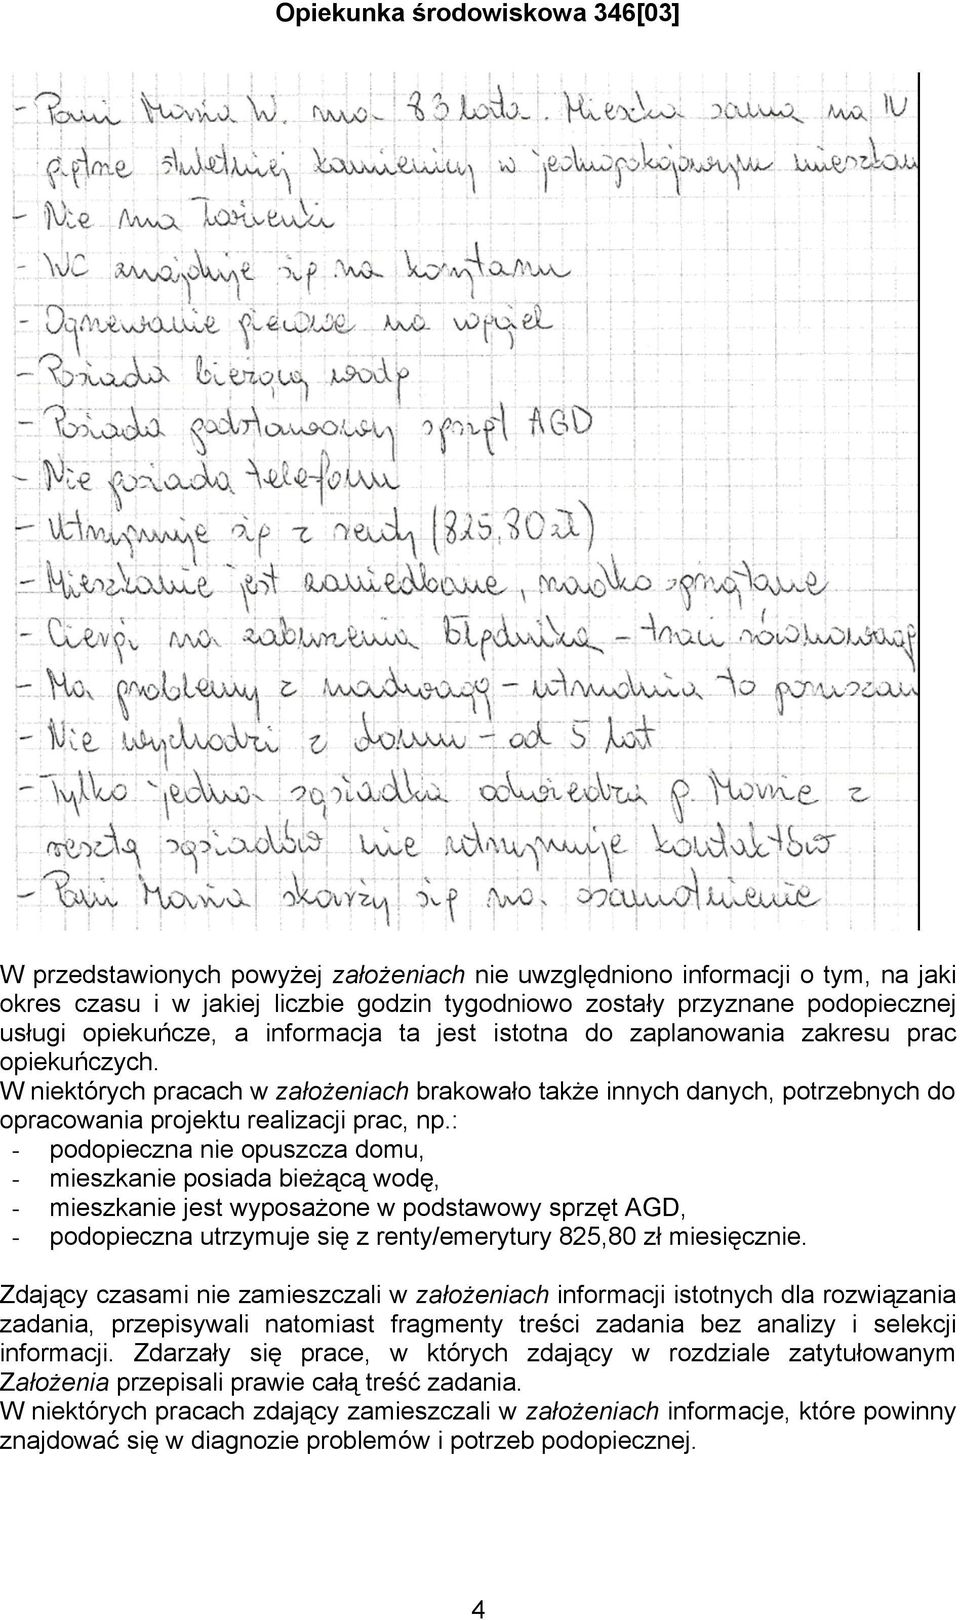 Opiekunka środowiskowa 346[03]
- Pani Maria W. ma 83 lata. Mieszka sama na IV
piętrze stuletniej kamienicy w jednopokojowym mieszkan
- Nie ma łazienki
- WC znajduje się na korytarzu
- Ogrzewanie piecowe na węgiel
- Posiada bieżącą wodę
- Posiada podstawowy sprzęt AGD
- Nie posiada telefonu
- Utrzymuje się z renty (825,80zł)
- Mieszkanie jest zaniedbane, rzadko sprzątane
- Cierpi na zaburzenia błędnika - traci równowagę
- Ma problemy z nadwagą - utrudnia to poruszan
- Nie wychodzi z domu - od 5 lat
- Tylko jedna sąsiadka odwiedza p. Marię z
resztą sąsiadów nie utrzymuje kontaktów
- Pani Maria skarży się na osamotnienie
W przedstawionych powyżej założeniach nie uwzględniono informacji o tym, na jaki
okres czasu i w jakiej liczbie godzin tygodniowo zostały przyznane podopiecznej
usługi opiekuńcze, a informacja ta jest istotna do zaplanowania zakresu prac
opiekuńczych.
W niektórych pracach w założeniach brakowało także innych danych, potrzebnych do
opracowania projektu realizacji prac, np.:
- podopieczna nie opuszcza domu,
- mieszkanie posiada bieżącą wodę,
- mieszkanie jest wyposażone w podstawowy sprzęt AGD,
- podopieczna utrzymuje się z renty/emerytury 825,80 zł miesięcznie.
Zdający czasami nie zamieszczali w założeniach informacji istotnych dla rozwiązania
zadania, przepisywali natomiast fragmenty treści zadania bez analizy i selekcji
informacji. Zdarzały się prace, w których zdający w rozdziale zatytułowanym
Założenia przepisali prawie całą treść zadania.
W niektórych pracach zdający zamieszczali w założeniach informacje, które powinny
znajdować się w diagnozie problemów i potrzeb podopiecznej.
4